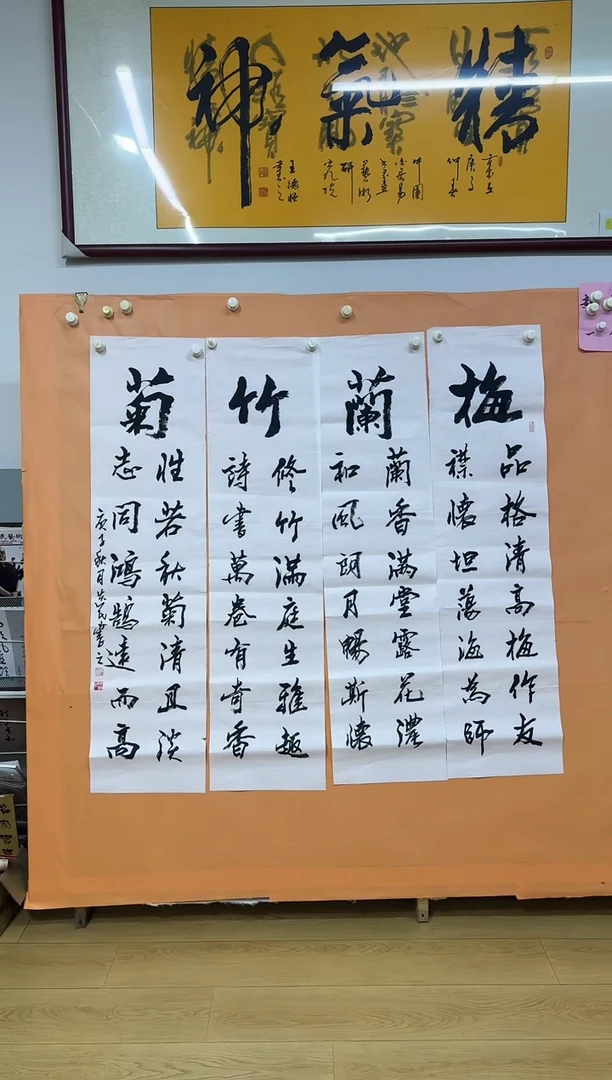 精氣神
梅
品格清高梅作友
襟懷坦蕩海為師
蘭
蘭香滿堂露花濃
和風朗月暢斯懷
竹
修竹滿庭生雅趣
詩書萬卷有奇香
菊
性若秋菊清且淡
志同鴻鵠遠而高
庚子秋月
書之